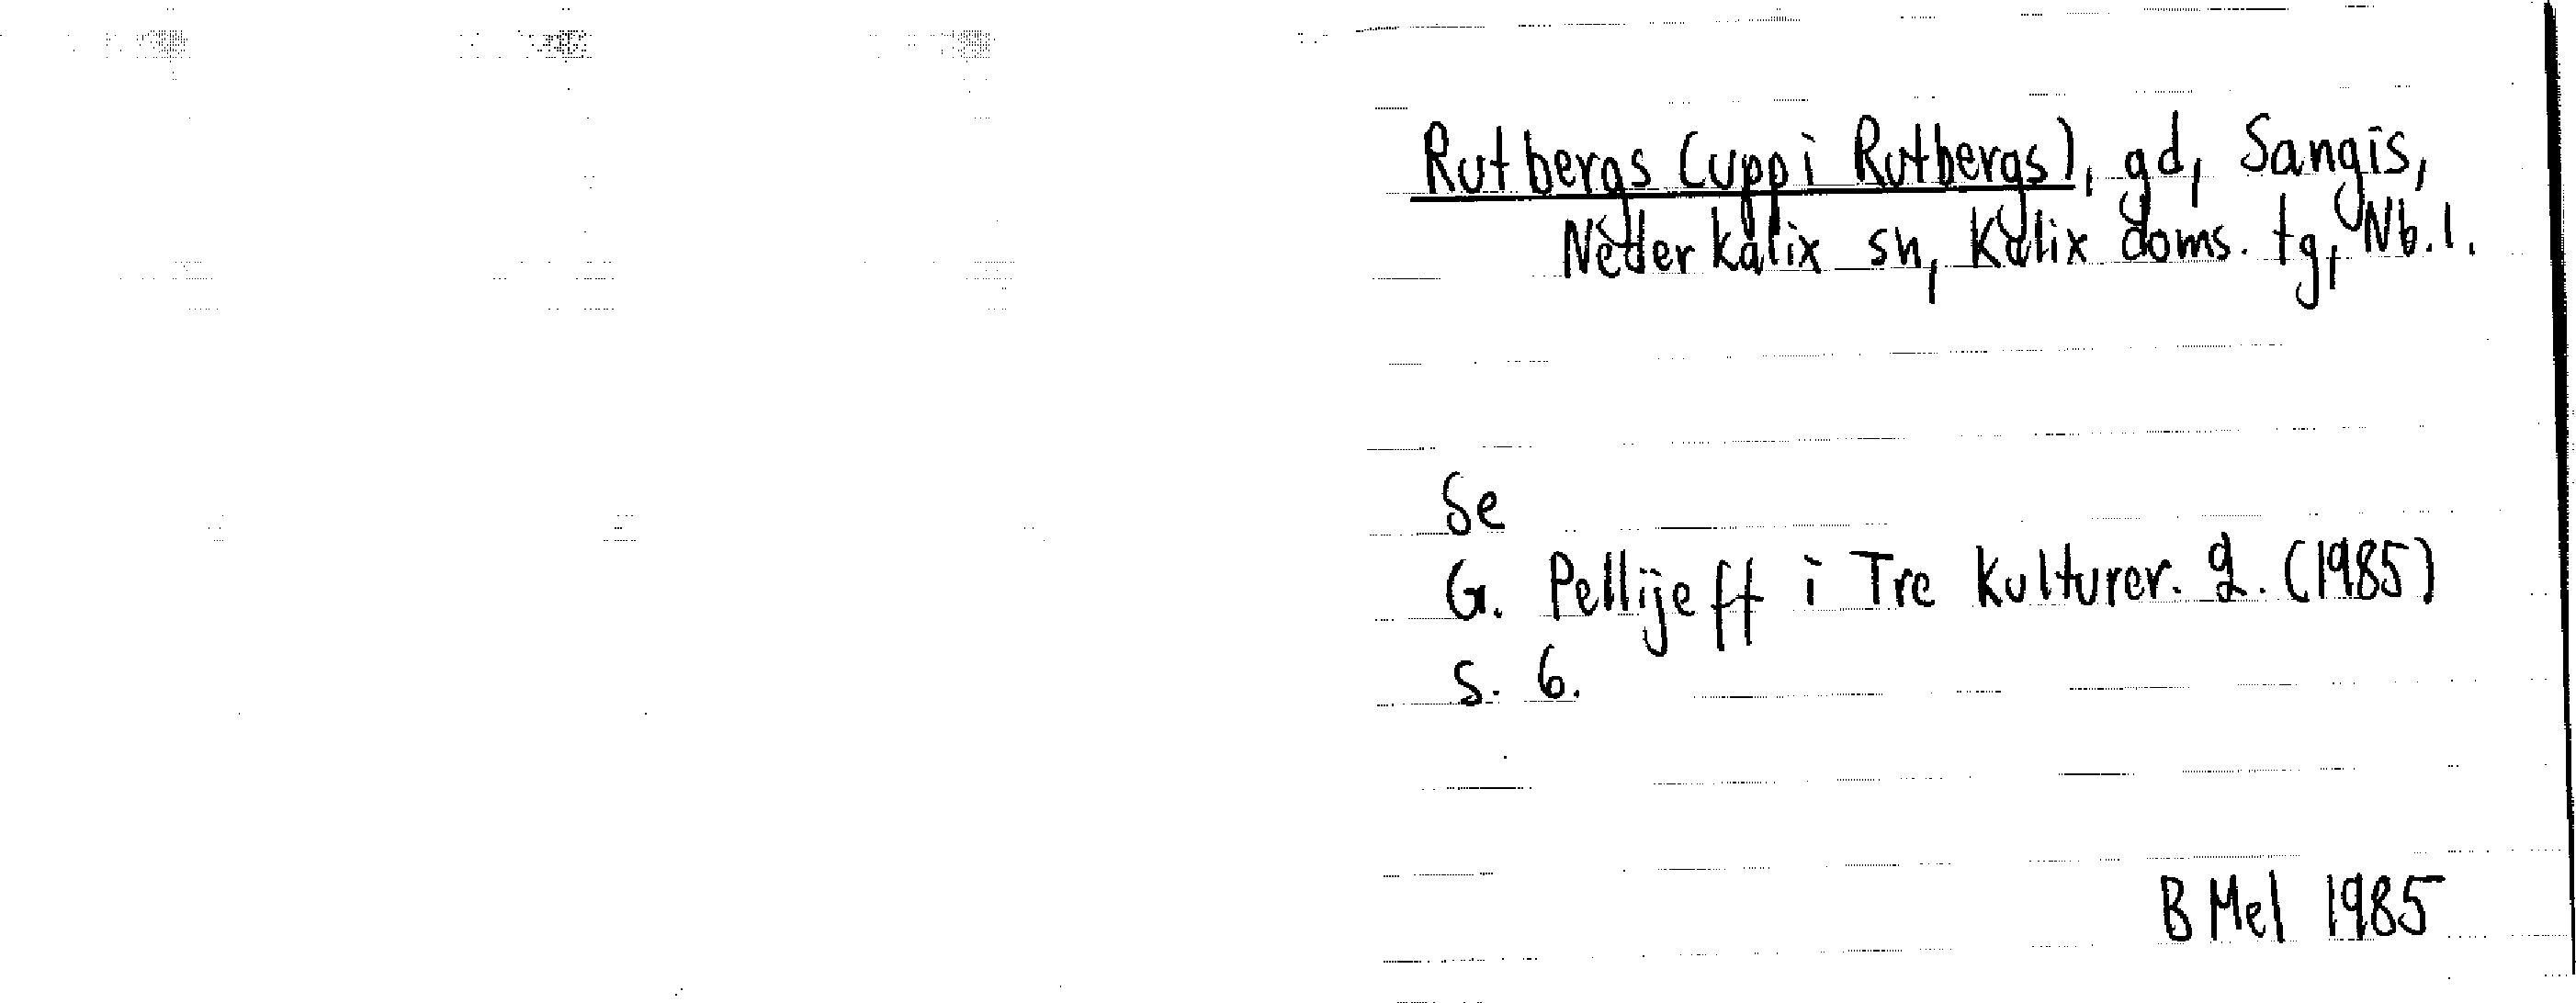 Rutbergs (uppi Rutbergs), gd, Sangis,
Nederkalix sn, Kalix doms. tg, Nb. l.
Se
G. Pellijeff i Tre Kulturer. 2. (1985)
S. 6.
B Mel 1985